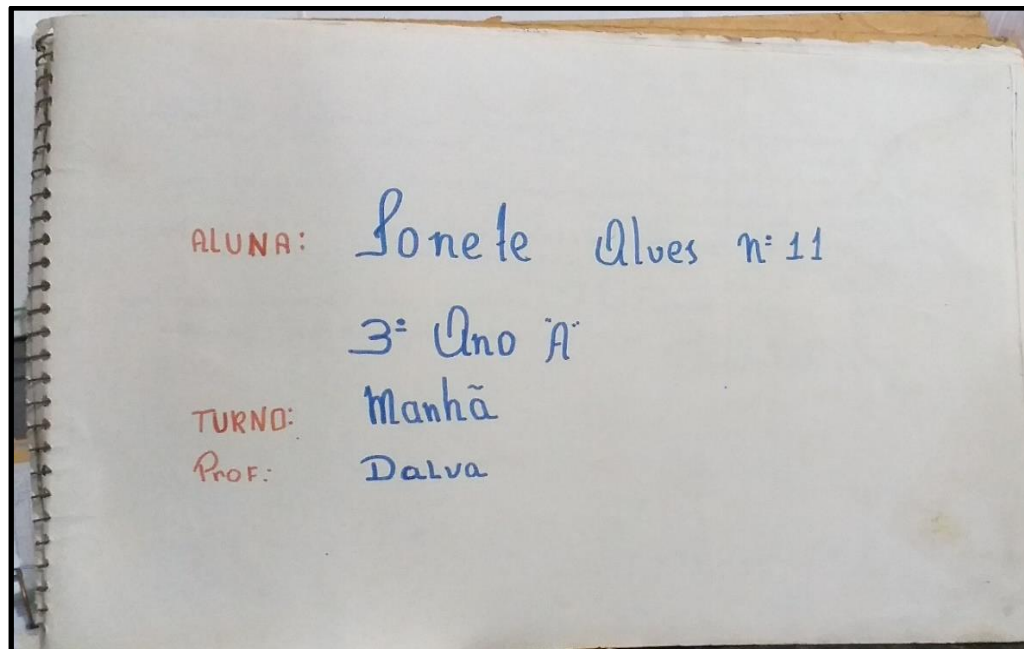 ALUNA: Sonete Alves nº 11
3º Ano "A"
TURNO: Manhã
Prof: Dalva